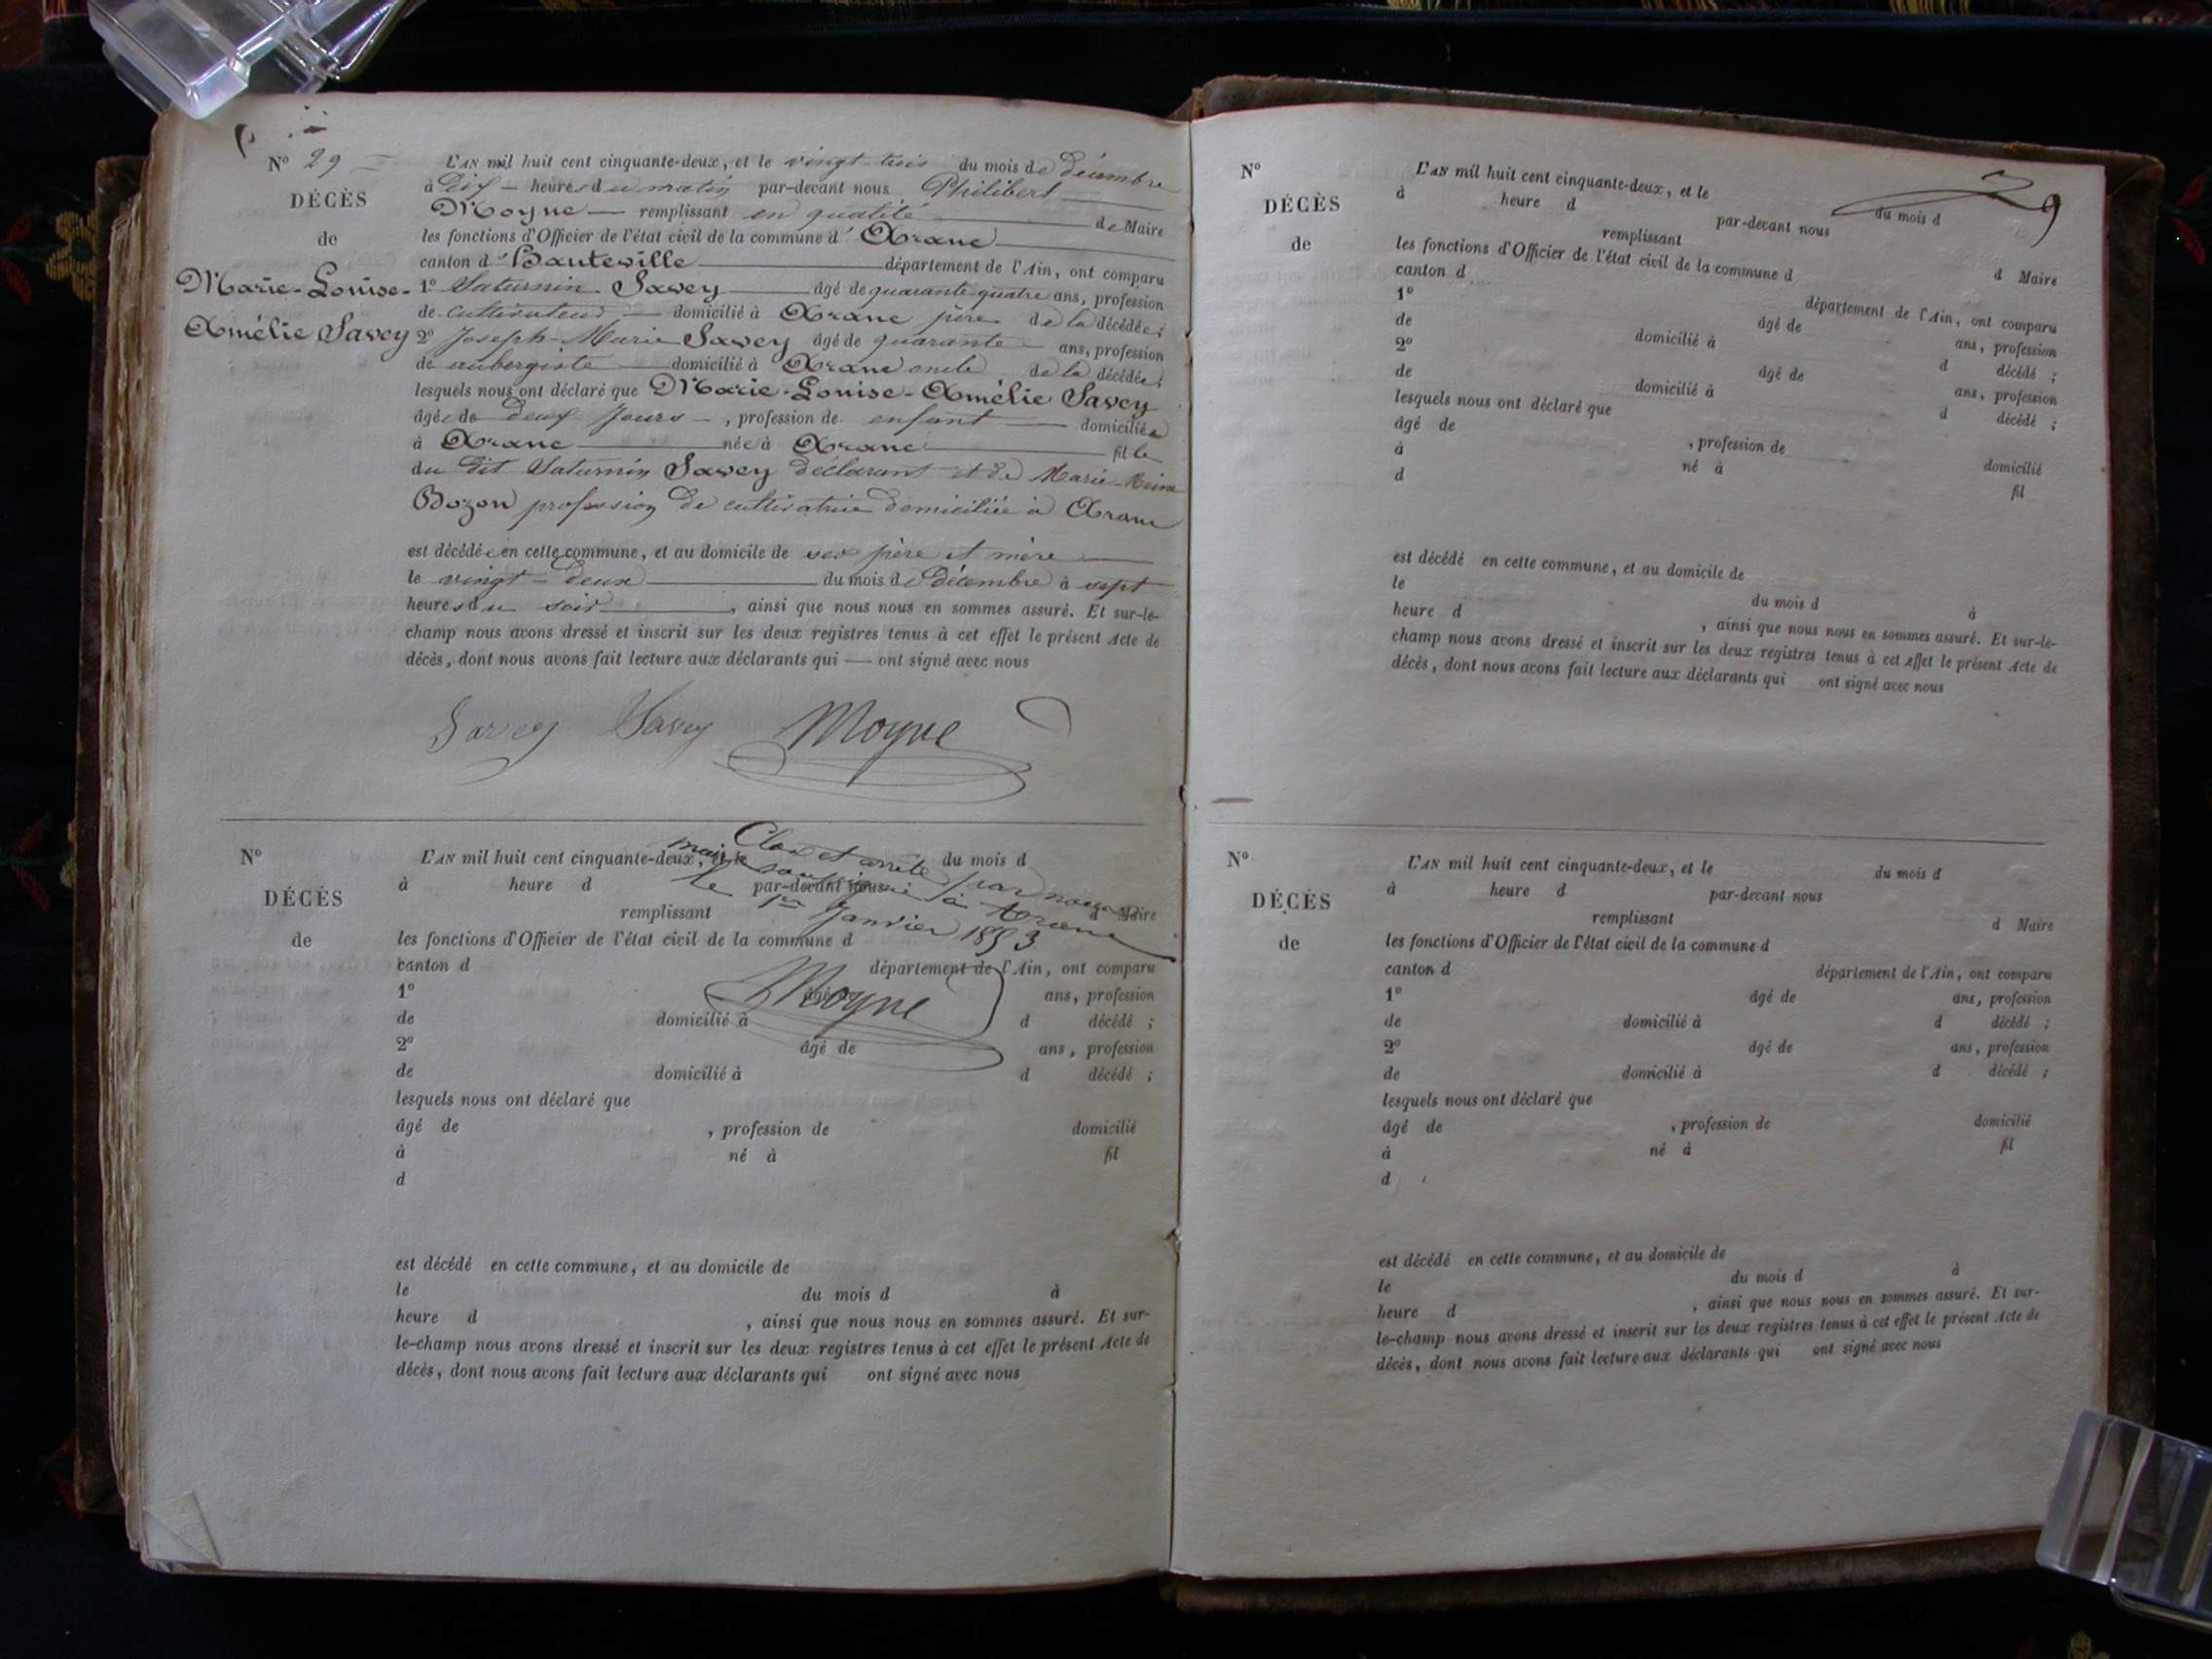 N° 29
DÉCÈS
de
Marie-Louise-
Amélie Savey
L'AN mil huit cent cinquante-deux, et le vingt-trois du mois de décembre
à dix heures du matin par-devant nous Philibert
Moyne remplissant en qualité de Maire
les fonctions d'Officier de l'état civil de la commune d'Arane
canton d'Hauteville département de l'Ain, ont comparu
1° Saturnin Savey âgé de quarante quatre ans, profession
de cultivateur domicilié à Arane père de la décédée ;
2° Joseph-Marie Savey âgé de quarante ans, profession
de aubergiste domicilié à Arane oncle de la décédée ;
lesquels nous ont déclaré que Marie-Louise-Amélie Savey
âgée de deux jours, profession de enfant domiciliée
à Arane née à Arane fille
du dit Saturnin Savey déclarant et de Marie-Reine
Bozon profession de cultivatrice domiciliée à Arane
est décédée en cette commune, et au domicile de ses père et mère
le vingt-deux du mois de Décembre à sept
heures du soir, ainsi que nous nous en sommes assuré. Et sur-le-
champ nous avons dressé et inscrit sur les deux registres tenus à cet effet le présent Acte de
décès, dont nous avons fait lecture aux déclarants qui — ont signé avec nous
Savey Savey Moyne
N°
DÉCÈS
de
L'AN mil huit cent cinquante-deux, et le du mois d
à heure d par-devant nous
remplissant d Maire
Clos et arrêté par nous
maire soussigné à Arane
le 1er Janvier 1853
Moyne
les fonctions d'Officier de l'état civil de la commune d
canton d département de l'Ain, ont comparu
1° âgé de ans, profession
de domicilié à d décédé ;
2° âgé de ans, profession
de domicilié à d décédé ;
lesquels nous ont déclaré que
âgé de , profession de domicilié
à né à fil
d
est décédé en cette commune, et au domicile de
le du mois d à
heure d , ainsi que nous nous en sommes assuré. Et sur-
le-champ nous avons dressé et inscrit sur les deux registres tenus à cet effet le présent Acte de
décès, dont nous avons fait lecture aux déclarants qui ont signé avec nous
29
N°
DÉCÈS
de
L'AN mil huit cent cinquante-deux, et le du mois d
à heure d par-devant nous
remplissant d Maire
les fonctions d'Officier de l'état civil de la commune d
canton d département de l'Ain, ont comparu
1° âgé de ans, profession
de domicilié à d décédé ;
2° âgé de ans, profession
de domicilié à d décédé ;
lesquels nous ont déclaré que
âgé de , profession de domicilié
à né à fil
d
est décédé en cette commune, et au domicile de
le du mois d à
heure d , ainsi que nous nous en sommes assuré. Et sur-le-
champ nous avons dressé et inscrit sur les deux registres tenus à cet effet le présent Acte de
décès, dont nous avons fait lecture aux déclarants qui ont signé avec nous
N°
DÉCÈS
de
L'AN mil huit cent cinquante-deux, et le du mois d
à heure d par-devant nous
remplissant d Maire
les fonctions d'Officier de l'état civil de la commune d
canton d département de l'Ain, ont comparu
1° âgé de ans, profession
de domicilié à d décédé ;
2° âgé de ans, profession
de domicilié à d décédé ;
lesquels nous ont déclaré que
âgé de , profession de domicilié
à né à fil
d
est décédé en cette commune, et au domicile de
le du mois d à
heure d , ainsi que nous nous en sommes assuré. Et sur-
le-champ nous avons dressé et inscrit sur les deux registres tenus à cet effet le présent Acte de
décès, dont nous avons fait lecture aux déclarants qui ont signé avec nous